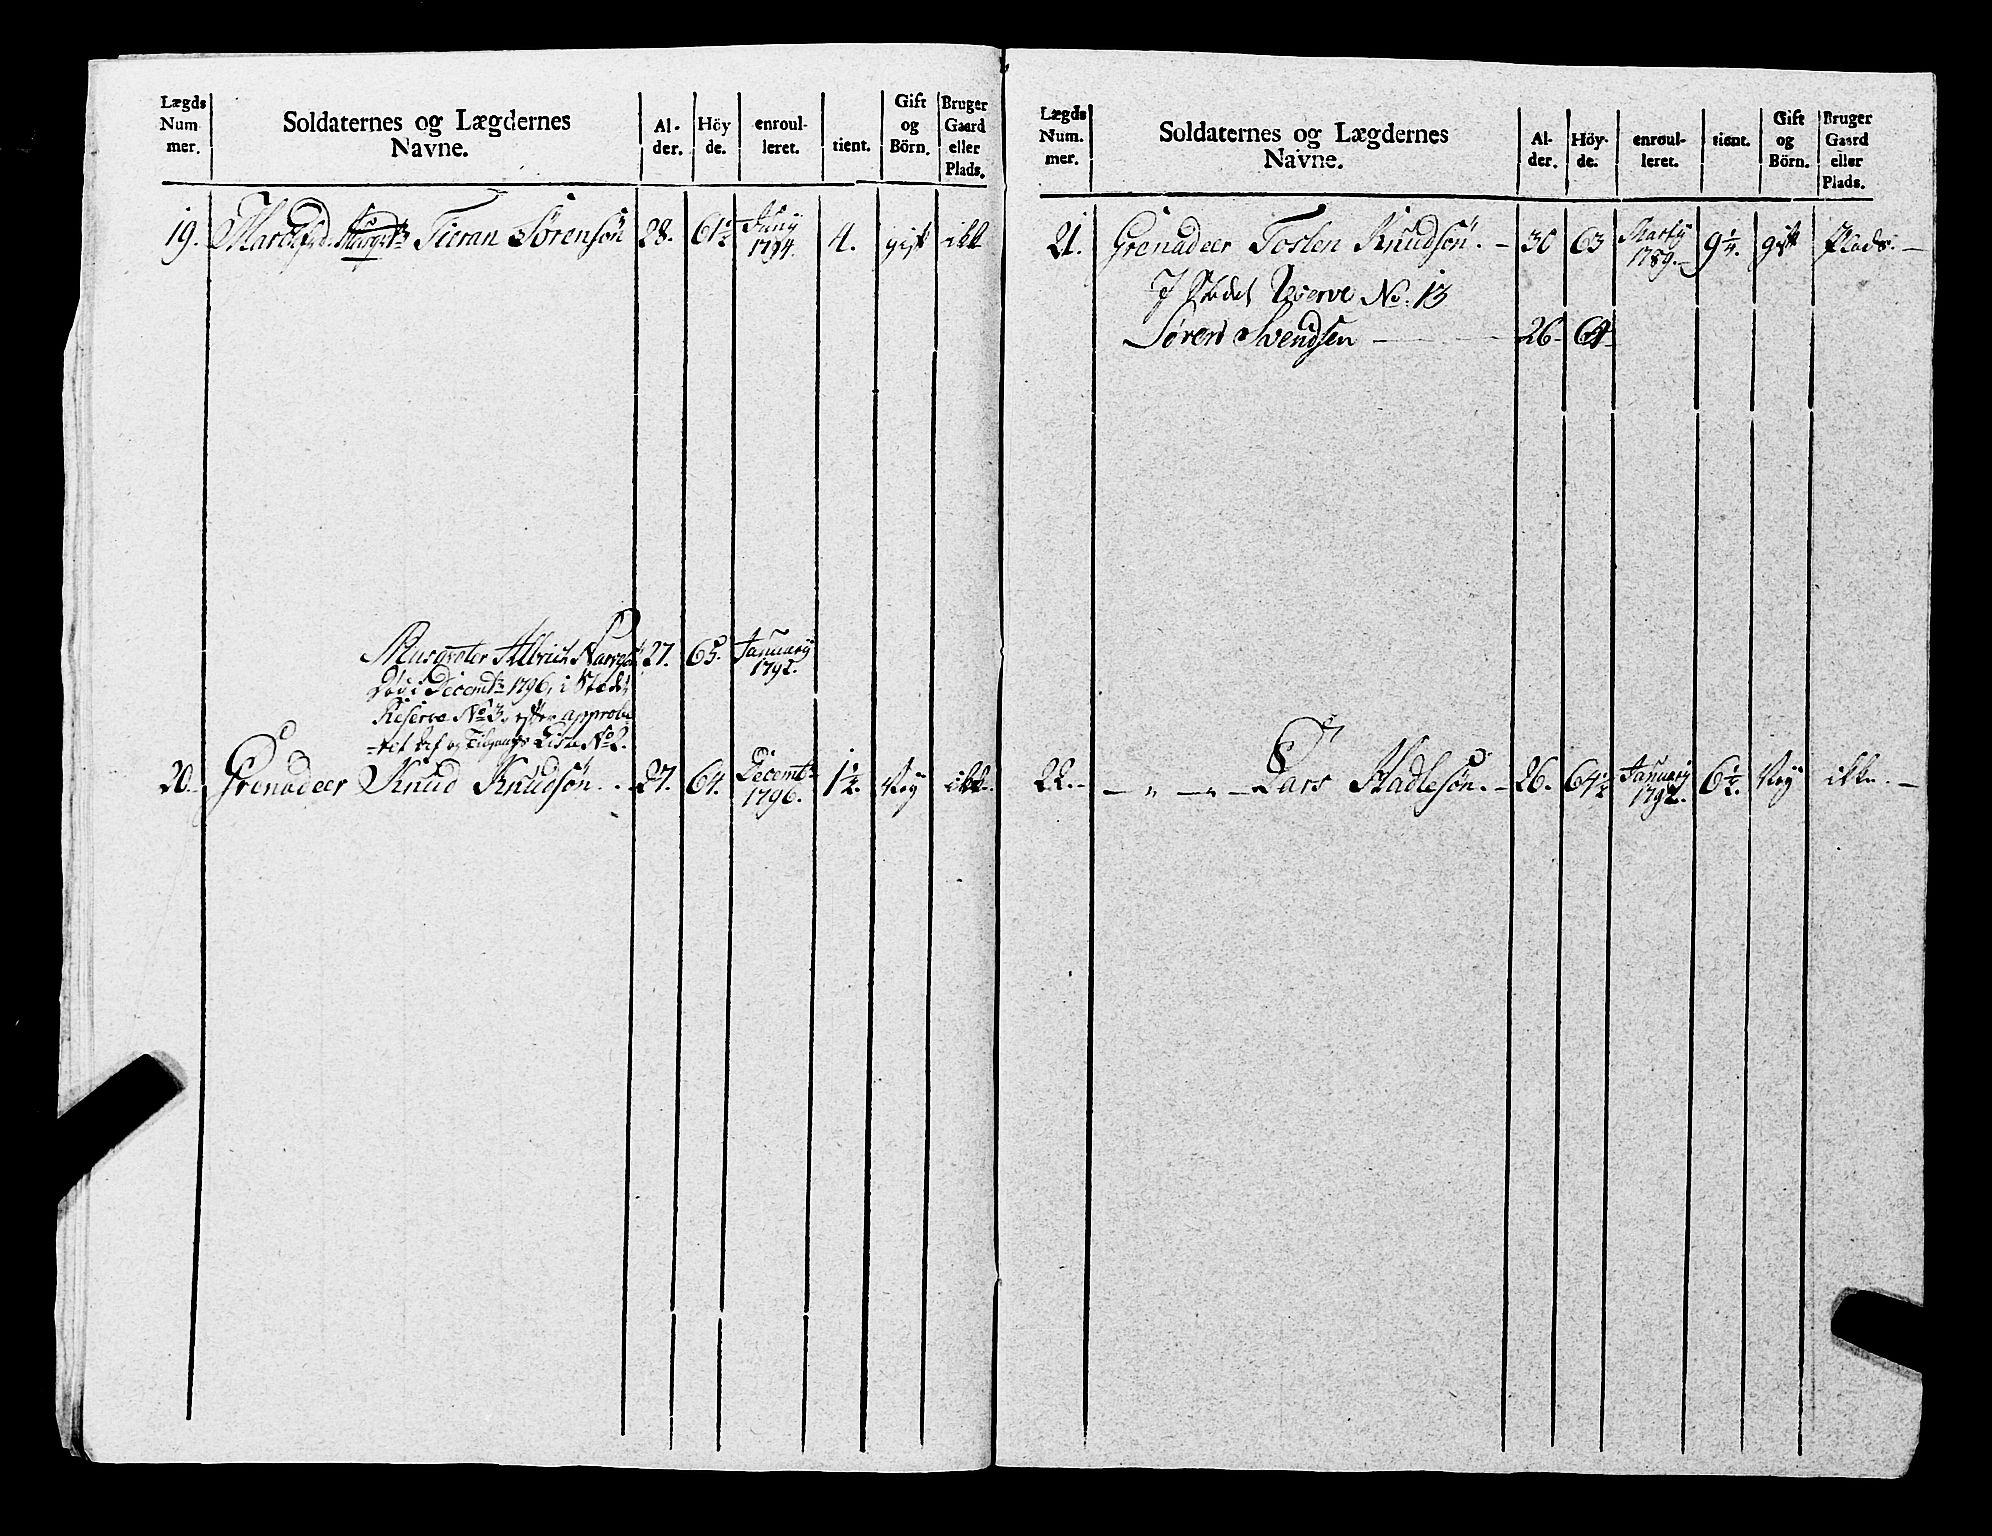 Lægds Num mer. Soldaternes og Lægdernes Navne. Al- der. Höy de. enroul- leret. tient. Gift og Börn. Bruger Gaard eller Plads.
19. Tieran Sørensøn 28. 61½ Juny 1794. 4. gift ikke
27. 65. January 1792.
Død i Decembr 1796, i Stedet
Reserve No 3. efter approbe
-ret Lista No 2.
20. Grenadeer Knud Knudsøn. 27. 64. Decembr 1796. 1½. Ney ikke.
Lægds Num. mer. Soldaternes og Lægdernes Navne. Al- der. Höy- de. enroul- leret. tient. Gift og Börn. Bruger Gaard eller Plads.
21. Grenadeer Toslen Knudsøn. 30 63 Marty 1789. 9¼ gift Plads.
I Stedet Reserve No. 13
Søren Svendsen 26
22. — „ — „ — Lars Hadlesøn. 26. 64½ January 1792. 6½. Ney ikke.